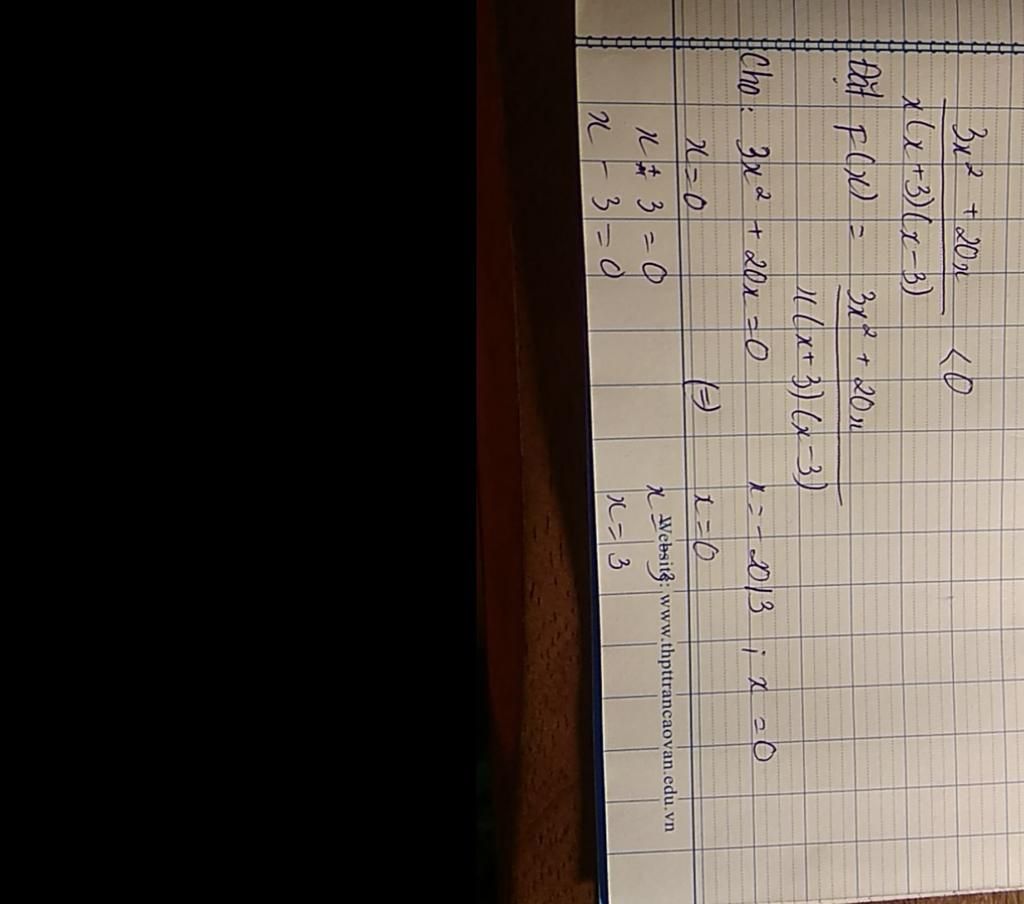 3x² + 20x
x(x+3)(x-3) < 0
Đặt F(x) = 3x² + 20x
x(x+3)(x-3)
Cho: 3x² + 20x = 0 x = -20/3 ; x = 0
x = 0 (=) x = 0
x + 3 = 0 x = -3
x - 3 = 0 x = 3
Website: www.thpttrancaovan.edu.vn